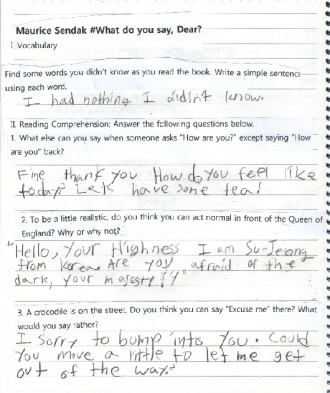 Maurice Sendak #What do you say, Dear?
I. Vocabulary
Find some words you didn't know as you read the book. Write a simple sentence
using each word.
I had nothing I didn't know.
II. Reading Comprehension: Answer the following questions below.
1. What else can you say when someone asks "How are you?" except saying "How
are you" back?
Fine thank you How do you feel like
today? Lets have some tea!
2. To be a little realistic, do you think you can act normal in front of the Queen of
England? Why or why not?
"Hello, Your Highness I am Su-Jeong
from Korea. Are you afraid of the
dark, your majesty?"
3. A crocodile is on the street. Do you think you can say "Excuse me" there? What
would you say rather?
I sorry to bump into you. Could
you move a little to let me get
out of the way?